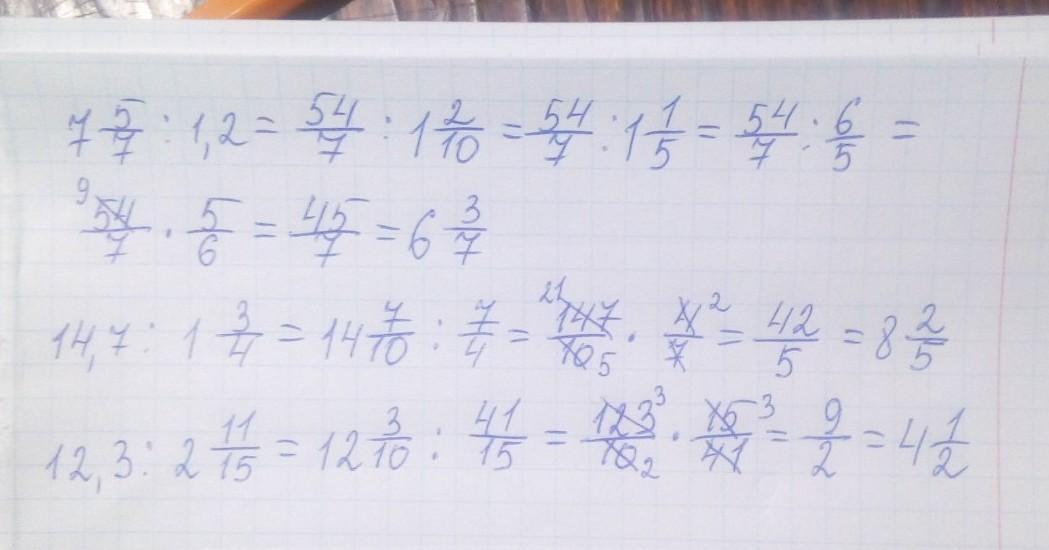 7 5/7 : 1,2 = 54/7 : 1 2/10 = 54/7 : 1 1/5 = 54/7 : 6/5 =
9 54/7 · 5/6 = 45/7 = 6 3/7
14,7 : 1 3/4 = 14 7/10 : 7/4 = 21 147/10 5 · 4/7 2 = 42/5 = 8 2/5
12,3 : 2 11/15 = 12 3/10 : 41/15 = 123/10 3 2 · 15/41 3 = 9/2 = 4 1/2